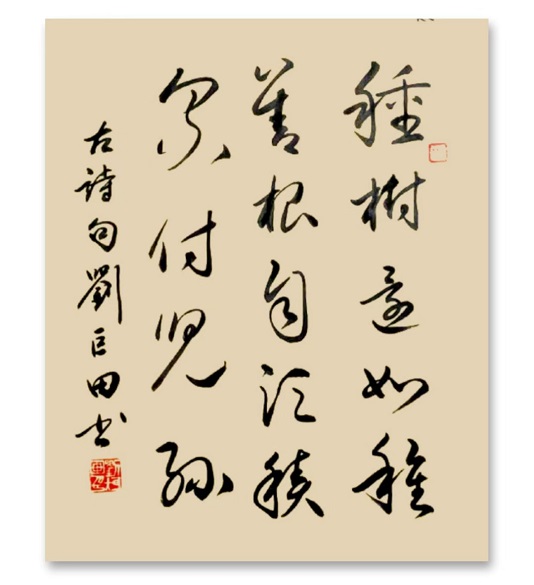 種樹還如種
善根自積
累付兒孫
古詩句劉巨田書